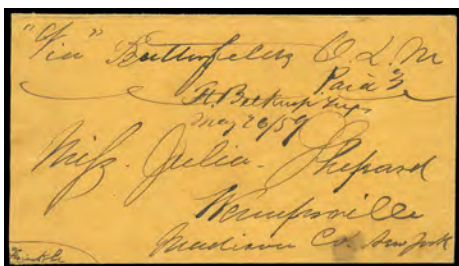 "Via" Butterfields O. L. M
Paid 3
Ft. Belknap Texs
May 26/59
Miss. Julia. Shepard
Wampsville
Madison Co. New York